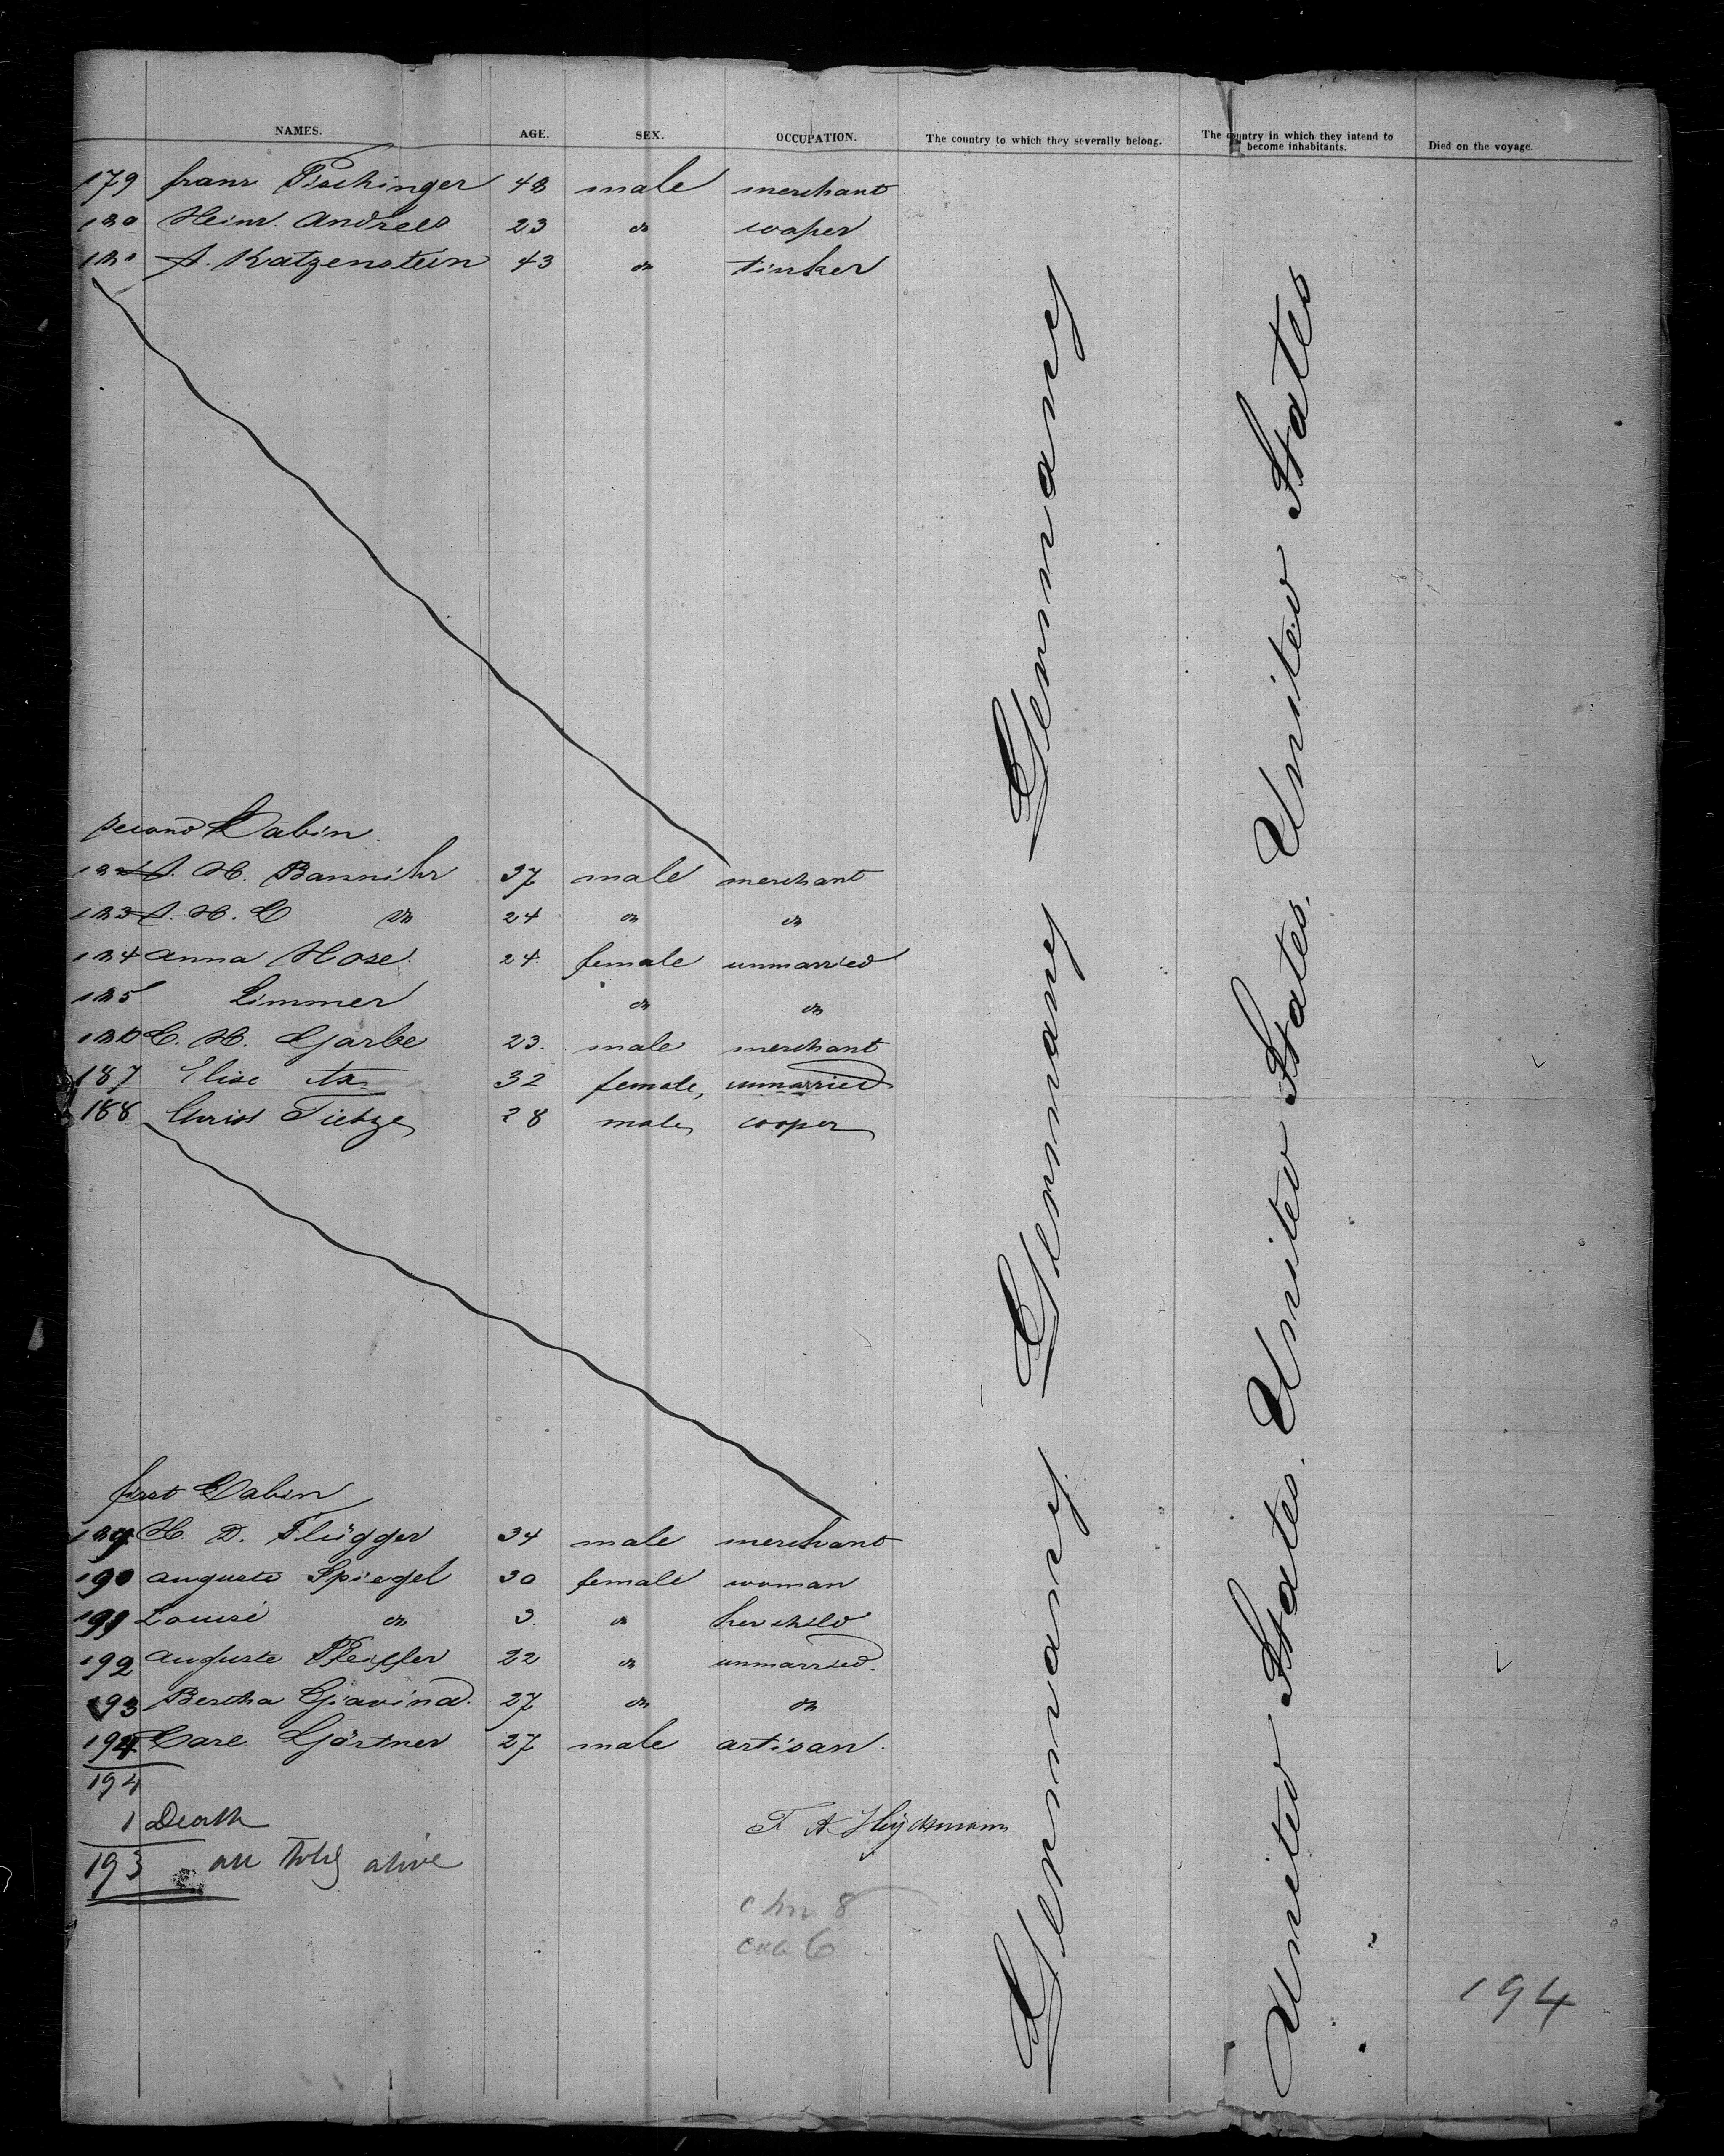 NAMES. AGE. SEX. OCCUPATION. The country to which they severally belong. The country in which they intend to become inhabitants. Died on the voyage.
179 franz Pischinger 48 male merchant
180 Heinr. Andrees 23 do cooper
181 A. Katzenstein 43 do tinker
second Cabin
182 A. H. Bannihr 37 male merchant
183 A. H. C do 24 do do
184 Anna Hose 24 female unmarried
185 Limmer do do
186 C. H. Garbe 23. male merchant
187 Elise 32 female, unmarried
188 Christ Tietze 28 male cooper
first Cabin
189 H. D. Flügger 34 male merchant
190 Auguste Spiegel 30 female woman
191 Louise do 3. do her child
192 Auguste Pfeiffer 22 do unmarried.
193 Bertha Gravind. 27 do do
194 Carl Gärtner 27 male artisan.
194
1 Death
193 all told alive
F A
8
cab 6
Germany Germany Germany
United States. United States. United States
194